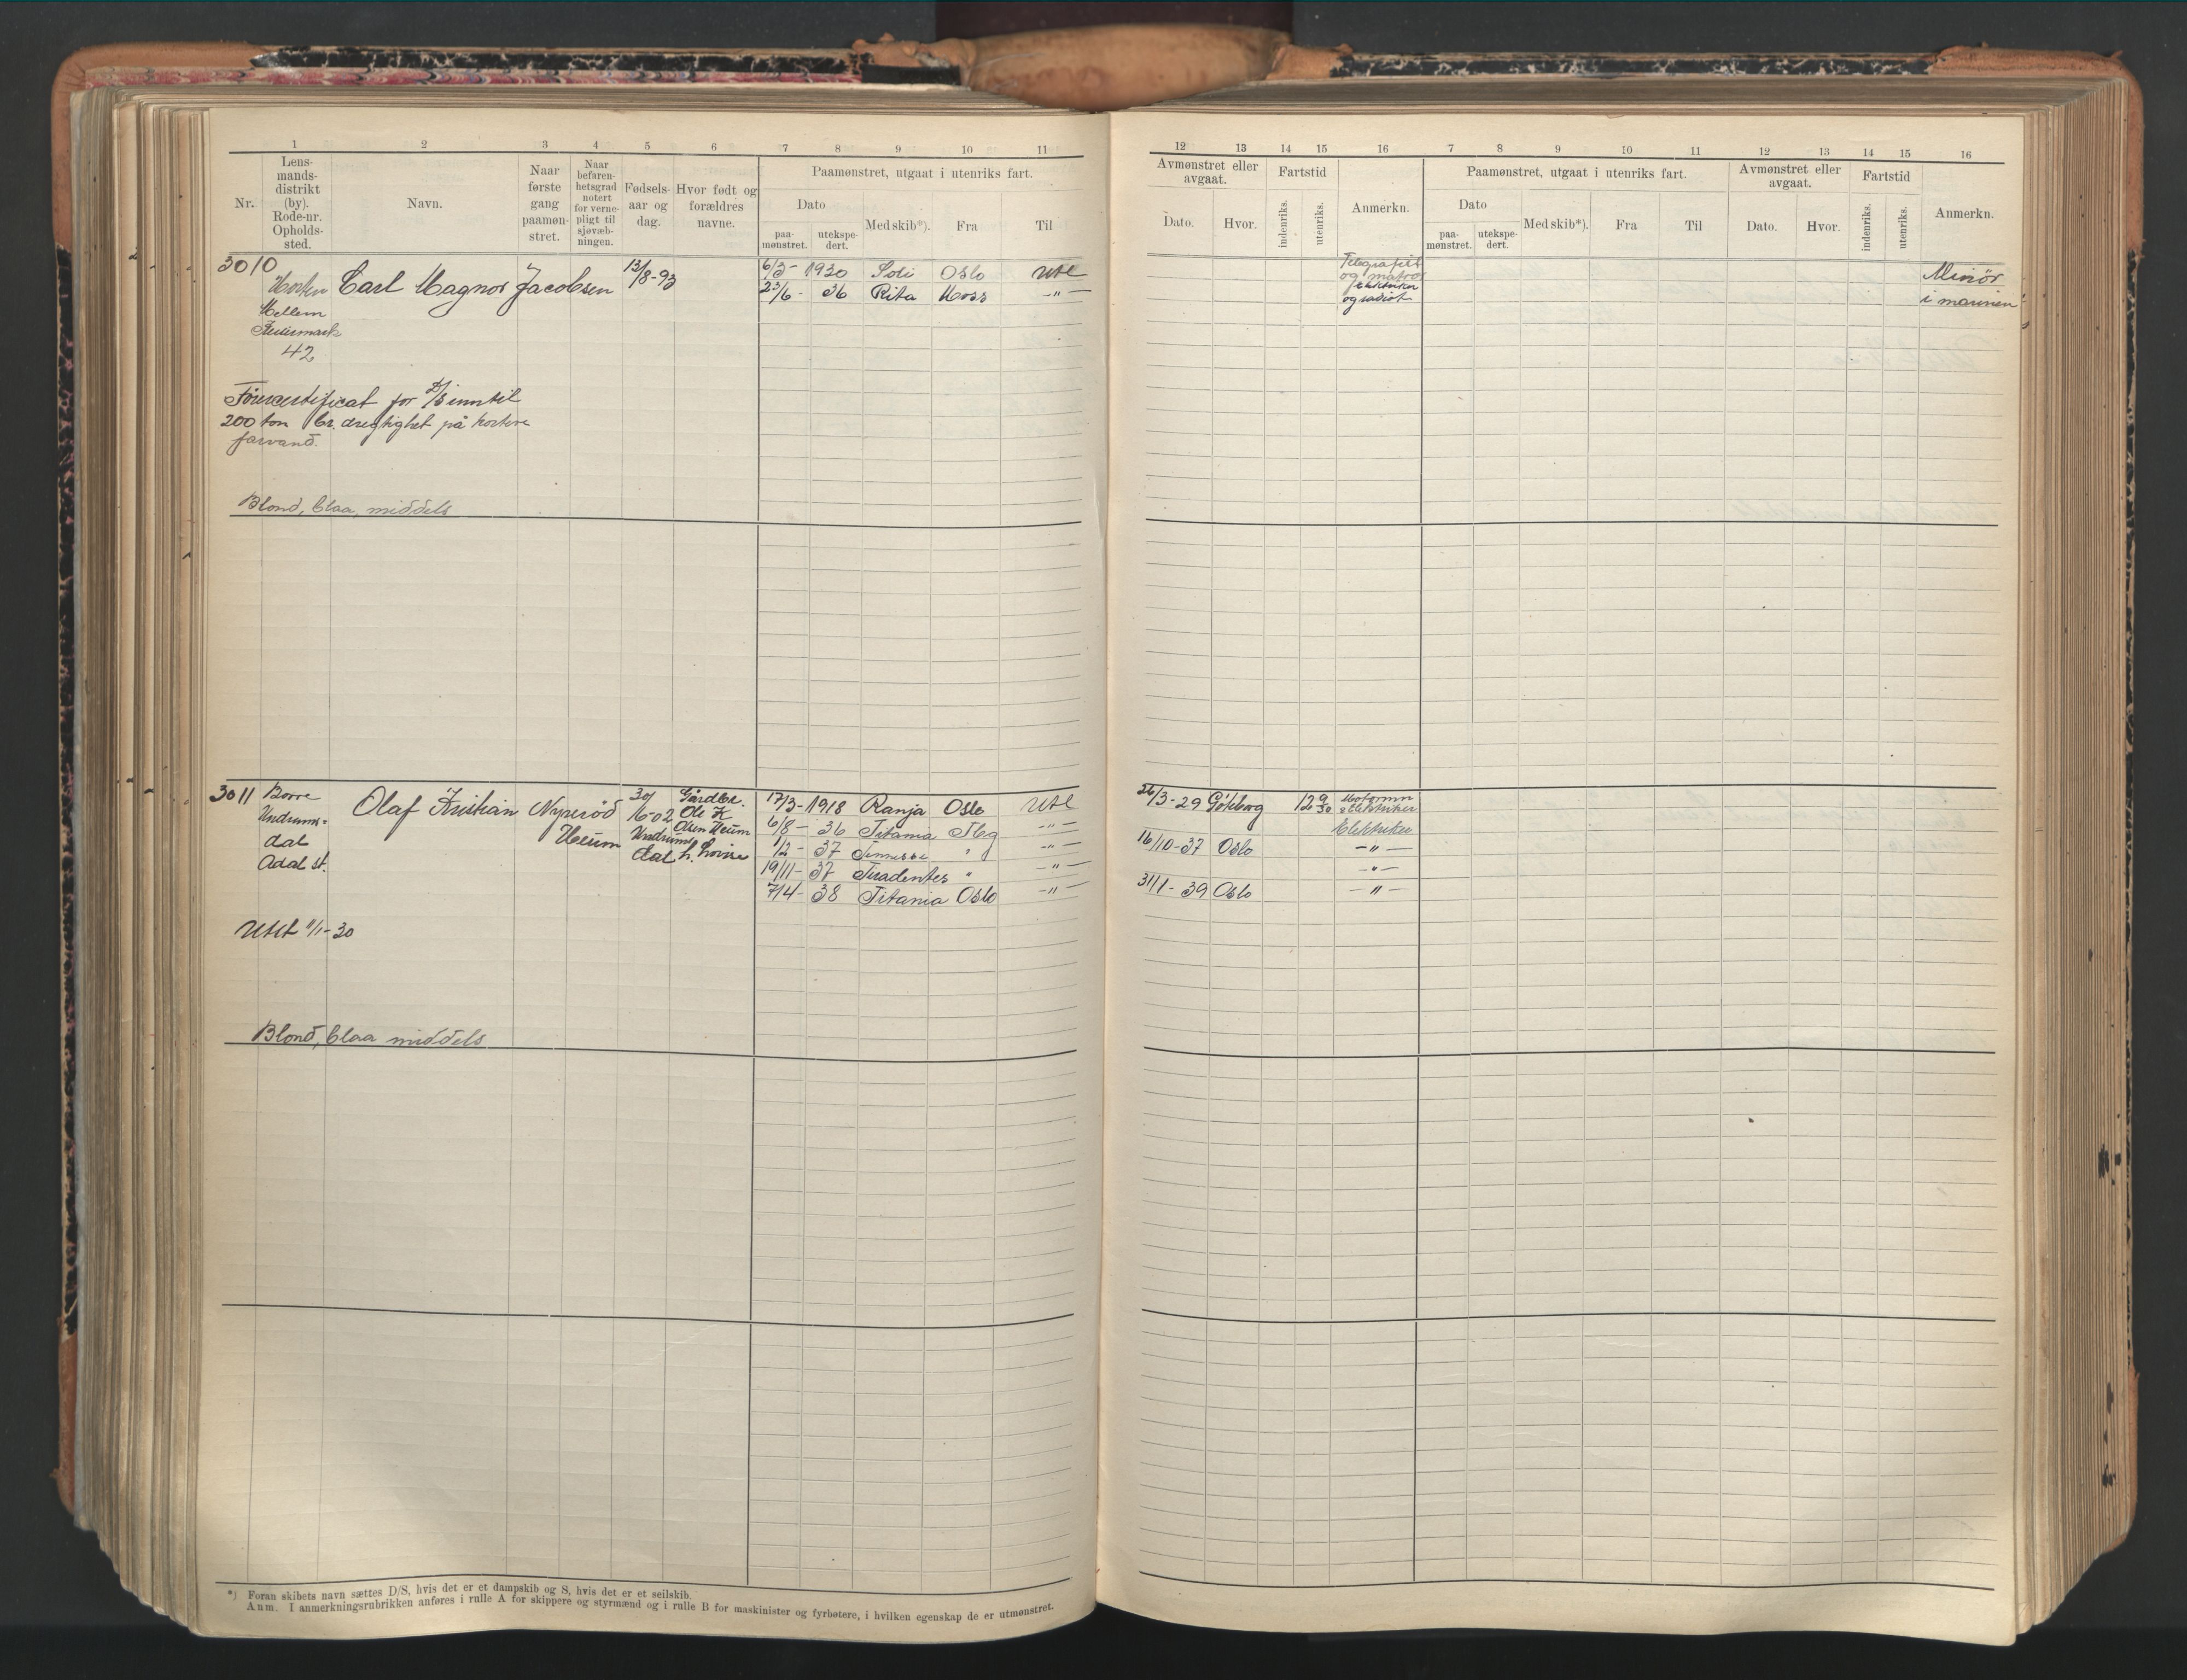 1 2 3 4 5 6 7 8 9 10 11
Nr.
Lens-
mands-
distrikt
(by).
Rode-nr.
Opholds-
sted.
Navn.
Naar
første
gang
paamøn-
stret.
Naar
befaren-
hetsgrad
notert
for verne-
pligt til
sjøvæb-
ningen.
Fødsels-
aar og
dag.
Hvor født og
forældres
navne.
Paamønstret, utgaat i utenriks fart.
Dato
paa-
mønstret.
utekspe-
dert.
Med skib*).
Fra
Til
3010
Horten Carl Magnor Jacobsen 13/8-93 6/3- 1930 Soli Oslo Utl
23/6- 36 Rita Moss -"-
Mellem
42
Förercertificat for D/S inntil
200 ton br. dregtighet på kortere
farvand.
Blond, blaa, middels
3011 Borre Olaf Kristian Nyperöd 30/ Gårdbr. 17/3- 1918 Ranja Oslo Utl
Undrums= Heum 6-02 Ole K 6/8- 36 Titania Tbg -"-
dal Olsen Heum 1/2- 37 Tennessee " -"-
Adal st. Undrums 19/11- 37 Tiradentes " -"-
dal h. Lovise 7/4- 38 Titania Oslo -"-
Utst 11/1-30
Blond, blaa middels
*) Foran skibets navn sættes D/S, hvis det er et dampskib og S, hvis det er et seilskib.
Anm. I anmerkningsrubrikken anføres i rulle A for skippere og styrmænd og i rulle B for maskinister og fyrbøtere, i hvilken egenskap de er utmønstret.
12 13 14 15 16 7 8 9 10 11 12 13 14 15 16
Avmønstret eller
avgaat.
Dato.
Hvor.
Fartstid
indenriks.
utenriks.
Anmerkn.
Paamønstret, utgaat i utenriks fart.
Dato
paa-
mønstret.
utekspe-
dert.
Med skib*).
Fra
Til
Avmønstret eller
avgaat.
Dato.
Hvor.
Fartstid
indenriks.
utenriks.
Anmerkn.
Telegrafist
og matros
elektriker
og radiot
Minör
i marinen
26/3-29 Göteborg 12 9/30 Motormn
elektriker
Elektriker
16/10-37 Oslo -"-
-"-
31/1-39 Oslo -"-